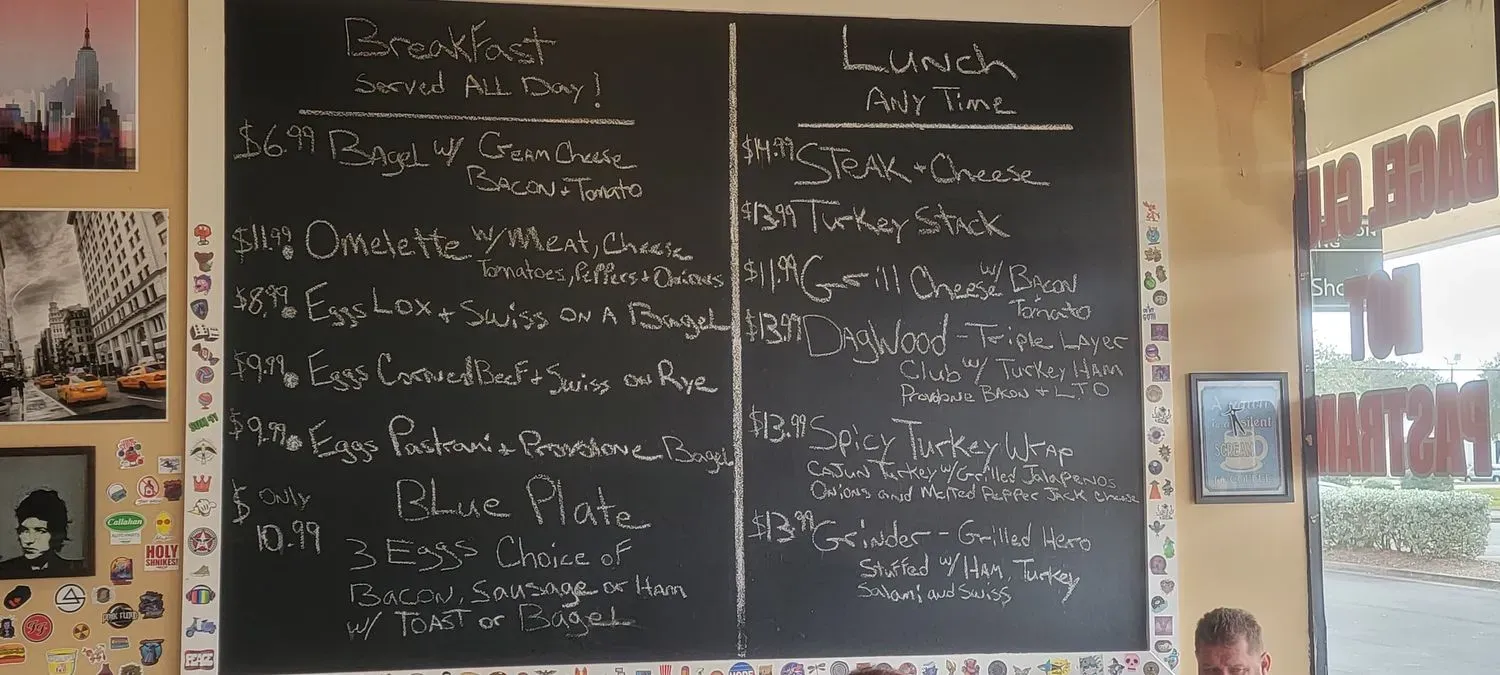 Breakfast
Served ALL Day!
$6.99 Bagel w/ Cream Cheese
Bacon + Tomato
$11.99 Omelette w/ Meat, Cheese
Tomatoes, Peppers + Onions
$8.99 Eggs Lox + Swiss on A Bagel
$9.99 Eggs Corned Beef + Swiss on Rye
$9.99 Eggs Pastrami + Provolone Bagel
$ only
10.99
Blue Plate
3 Eggs Choice of
Bacon, Sausage or Ham
w/ Toast or Bagel
Lunch
Any Time
$14.99 Steak + Cheese
$13.99 Turkey Stack
$11.99 Grill Cheese w/ Bacon
Tomato
$13.99 Dagwood - Triple Layer
Club w/ Turkey Ham
Provolone Bacon + L.T.O
$13.99 Spicy Turkey Wrap
Cajun Turkey w/ Grilled Jalapenos
Onions and Melted Pepper Jack Cheese
$13.99 Grinder - Grilled Hero
Stuffed w/ Ham, Turkey
Salami and Swiss
Callahan
HOLY
SHNIKES!
PINK FLOYD
PEACE
HOPE
silent
SCREAM
for COFFEE
BAGEL
HOT